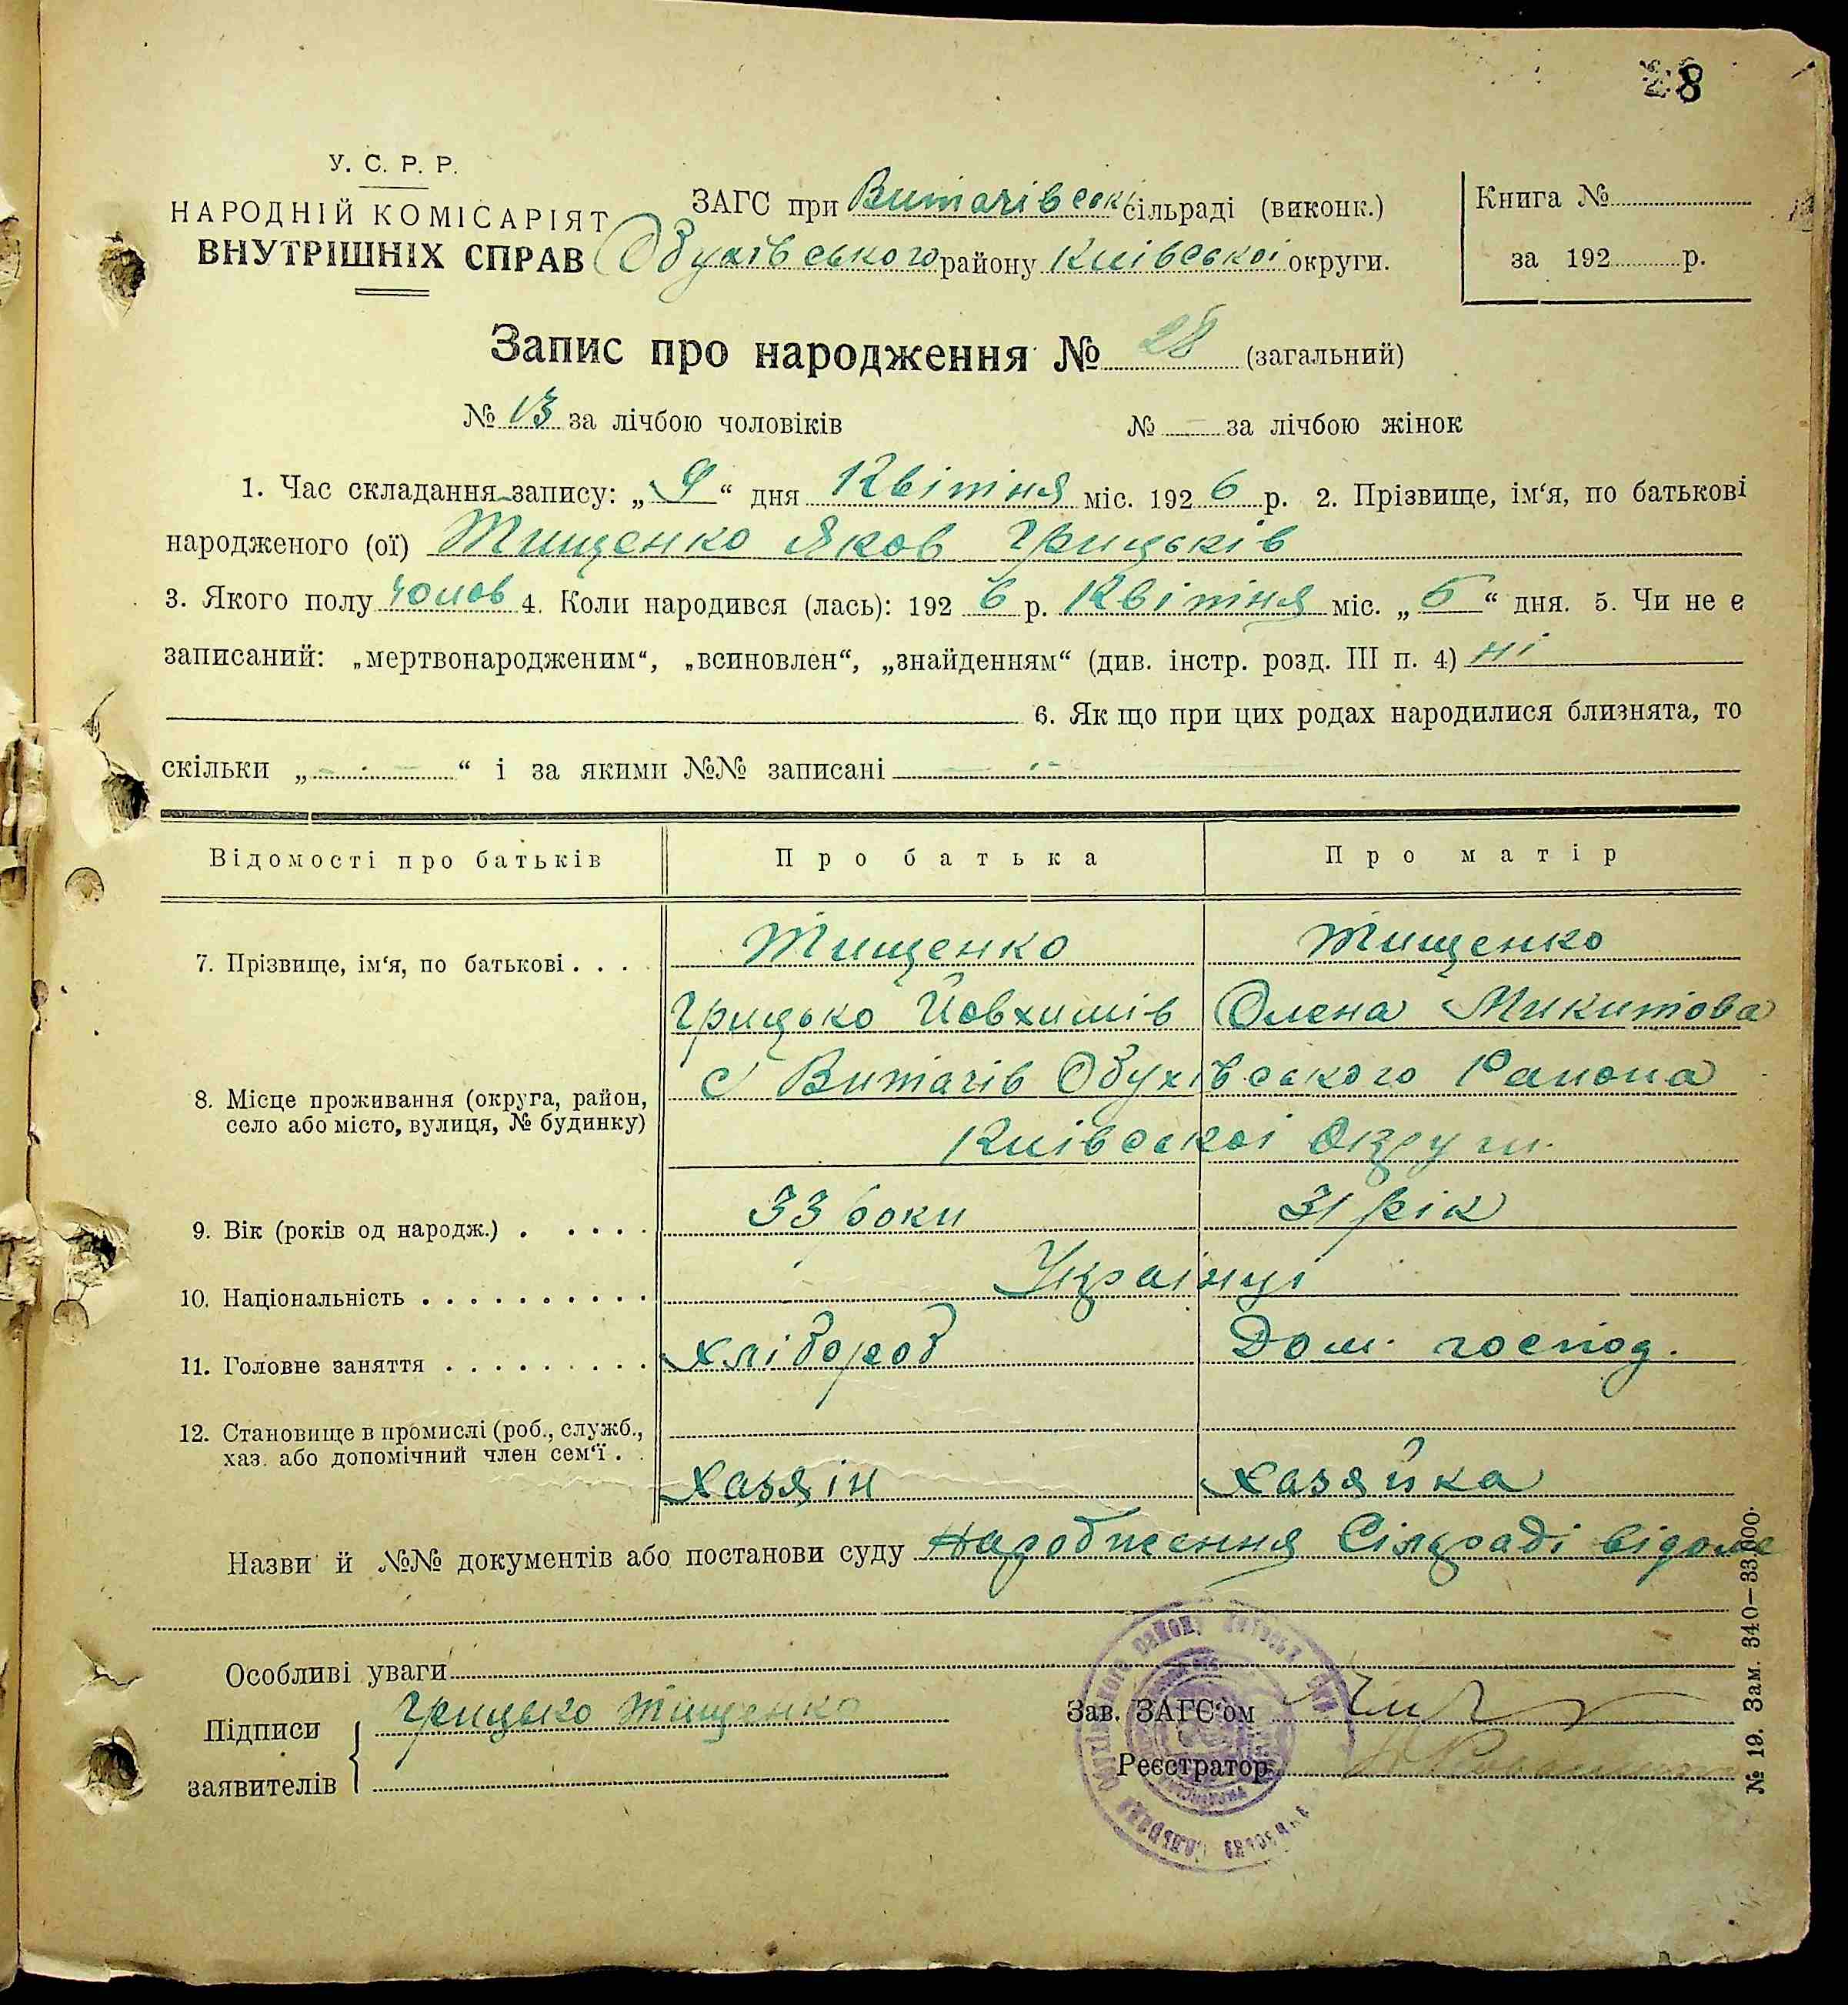 28
У. С. Р. Р.
НАРОДНІЙ КОМІСАРІЯТ
ВНУТРІШНІХ СПРАВ
ЗАГС при Витачівські сільраді (виконк.)
Обухівського району Киівськоі округи.
Книга №
за 192 р.
Запис про народження № 28 (загальний)
№ 13 за лічбою чоловіків № — за лічбою жінок
1. Час складання запису: „9“ дня Квітня міс. 1926 р. 2. Прізвище, ім‘я, по батькові
народженого (ої) Тищенко Яков Грицьків
3. Якого полу чолов 4. Коли народився (лась): 1926 р. Квітня міс. „5“ дня. 5. Чи не є
записаний: „мертвонародженим“, „всиновлен“, „знайденням“ (див. інстр. розд. III п. 4) ні
6. Як що при цих родах народилися близнята, то
скільки „ — “ і за якими №№ записані —
Відомості про батьків Про батька Про матір
7. Прізвище, ім‘я, по батькові . . . Тищенко Тищенко
Грицько Йовхимів Олена Микитова
8. Місце проживання (округа, район, с Витачів Обухівського Района
село або місто, вулиця, № будинку) Киівськоі Округи.
9. Вік (років од народж.) . . . . . 33 роки 31 рік
10. Національність . . . . . . . . . . Украінці
11. Головне заняття . . . . . . . . . Хлібороб Дом. господ.
12. Становище в промислі (роб., служб.,
хаз. або допомічний член сем‘ї . . Хазяін Хазяйка
Назви й №№ документів або постанови суду Народження Сільраді відоме
Особливі уваги
Підписи Грицько Тищенко
заявителів
Зав. ЗАГС‘ом
Реєстратор
№ 19. Зам. 340—33.000.